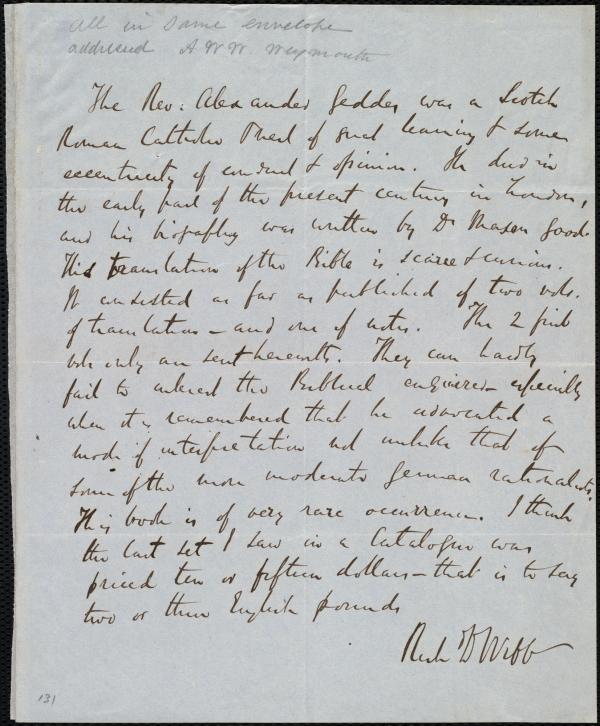 all in same envelope
addressed A W W. Weymouth
The Rev: Alexander Geddes was a Scotch
Roman Catholic Priest of great learning & some
eccentricity of conduct & opinion. He died in
the early part of the present century in London,
and his biography was written by Dr Mason Good.
His translation of the Bible is scarce & curious.
It consisted as far as published of two vols.
of translation – and one of notes. The 2 first
vols only are sent herewith. They can hardly
fail to interest the Biblical enquirer – especially
when it is remembered that he advocated a
mode of interpretation not unlike that of
some of the more moderate German rationalists.
This book is of very rare occurrence. I think
the last set I saw in a Catalogue was
priced ten or fifteen dollars – that is to say
two or three English pounds
Richd D Webb
131